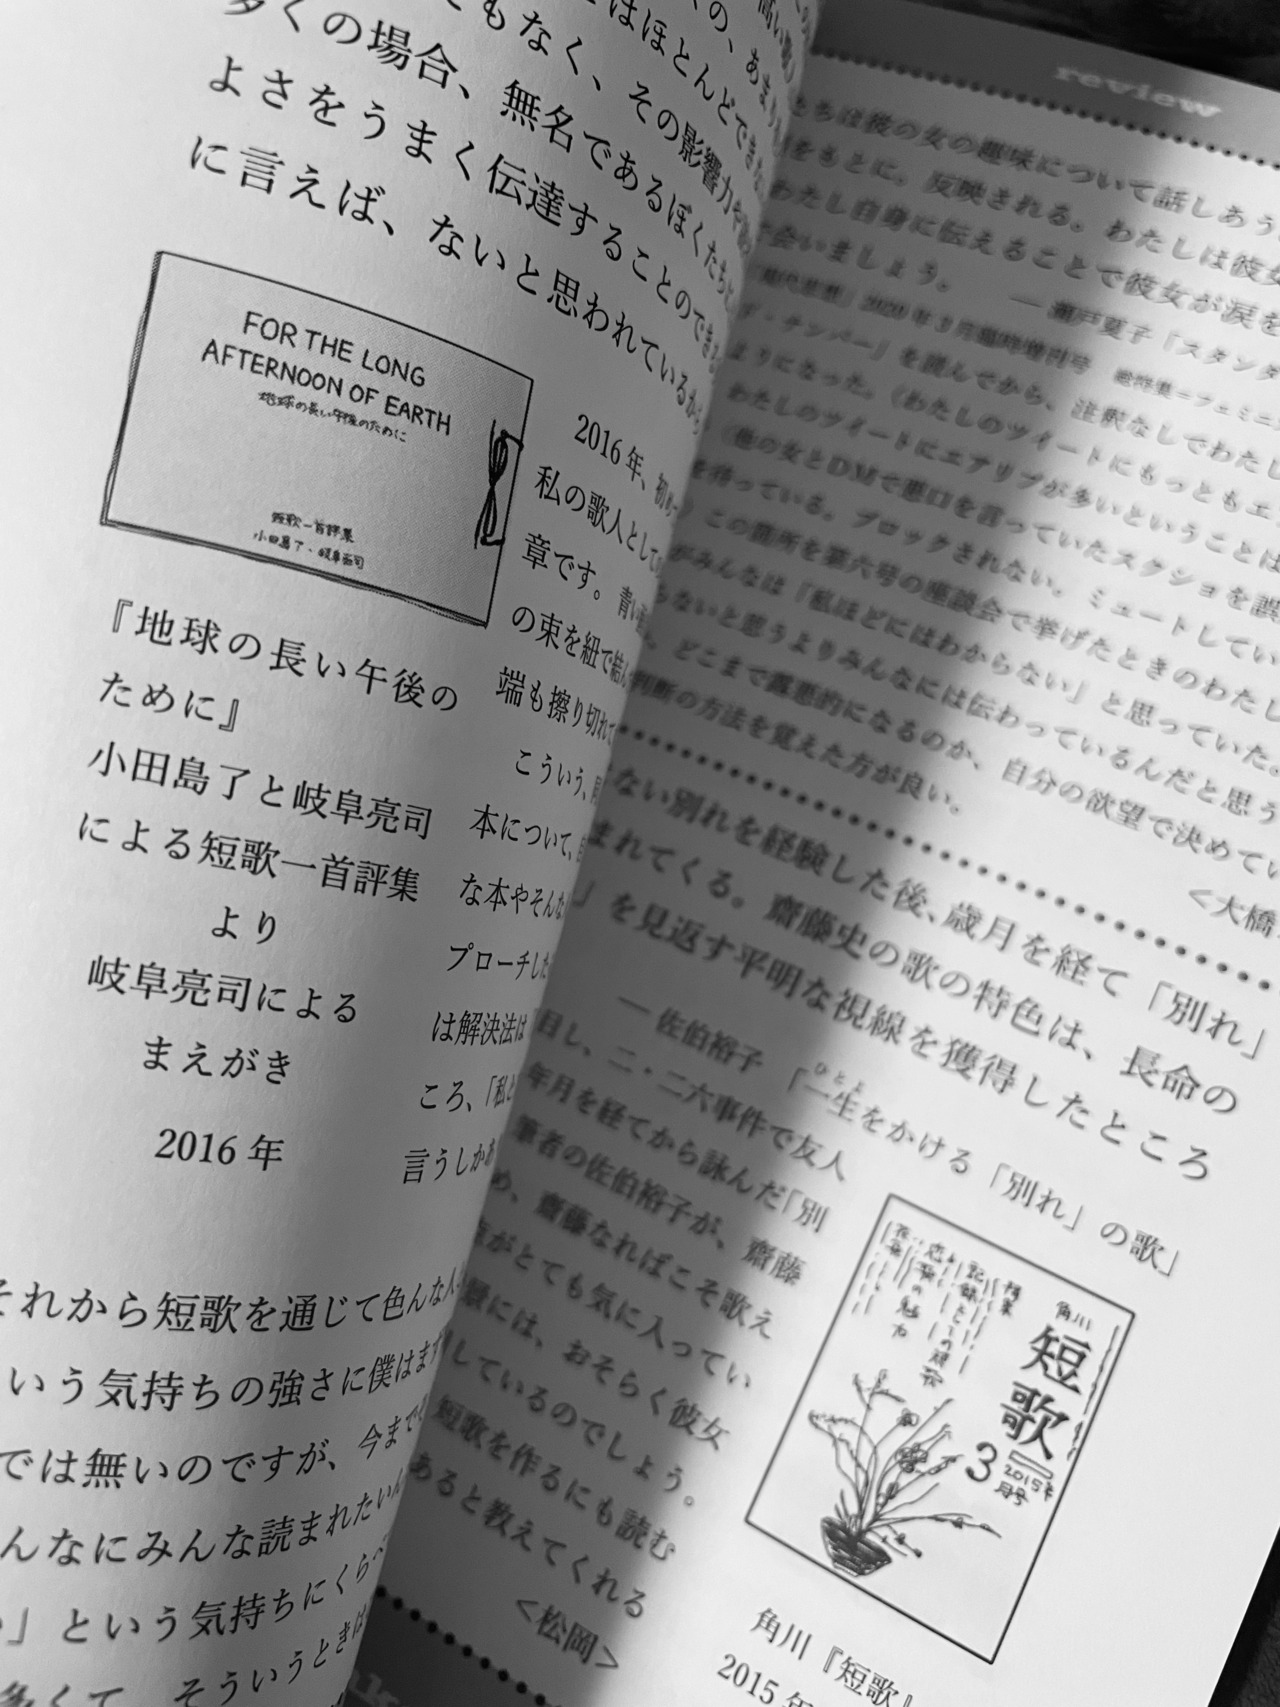 多くの場合、無名であるぼくたち
よさをうまく伝達することのでき
に言えば、ないと思われているから
FOR THE LONG
AFTERNOON OF EARTH
地球の長い午後のために
短歌一首評集
小田島了・岐阜亮司
『地球の長い午後の
ために』
小田島了と岐阜亮司
による短歌一首評集
より
岐阜亮司による
まえがき
2016年
2016年、初めて
私の歌人として
章です。青い
の束を紐で結ん
端も擦り切れて
こういう、
本について、
な本やそんな
プローチした
は解決法は
ころ、「私と
言うしかあ
それから短歌を通じて色んな人
いう気持ちの強さに僕はまず
では無いのですが、今まで
んなにみんな読まれたいん
」という気持ちにくらべ
多くて、そういうときは
review
たちは後の女の趣味について話しあう
をもとに、反映される。わたしは彼女
わたし自身に伝えることで彼女が涙を
会いましょう。 ―瀬戸夏子「スタンダ
「現代思想」2020年3月臨時増刊号 総特集=フェミニ
・テンパー』を読んでから、注釈なしでわたし
ようになった。(わたしのツイートにもっともエ
わたしのツイートにエアリプが多いということは
(他の女とDMで悪口を言っていたスクショを誤
を待っている。ブロックされない。ミュートしてい
)この箇所を第六号の座談会で挙げたときのわたし
がみんなは「私ほどにはわからない」と思っていた。
らないと思うよりみんなには伝わっているんだと思う
。どこまで露悪的になるのか、自分の欲望で決めてい
判断の方法を覚えた方が良い。
<大橋
ない別れを経験した後、歳月を経て「別れ」
まれてくる。齋藤史の歌の特色は、長命の
」を見返す平明な視線を獲得したところ
―佐伯裕子「一生をかける「別れ」の歌」
ひとよ
目し、二・二六事件で友人
年月を経てから詠んだ「別
筆者の佐伯裕子が、齋藤
め、齋藤なればこそ歌え
がとても気に入ってい
には、おそらく彼女
しているのでしょう。
短歌を作るにも読む
あると教えてくれる
<松岡>
角川
短歌
3
2015年
月号
角川『短歌』
2015年